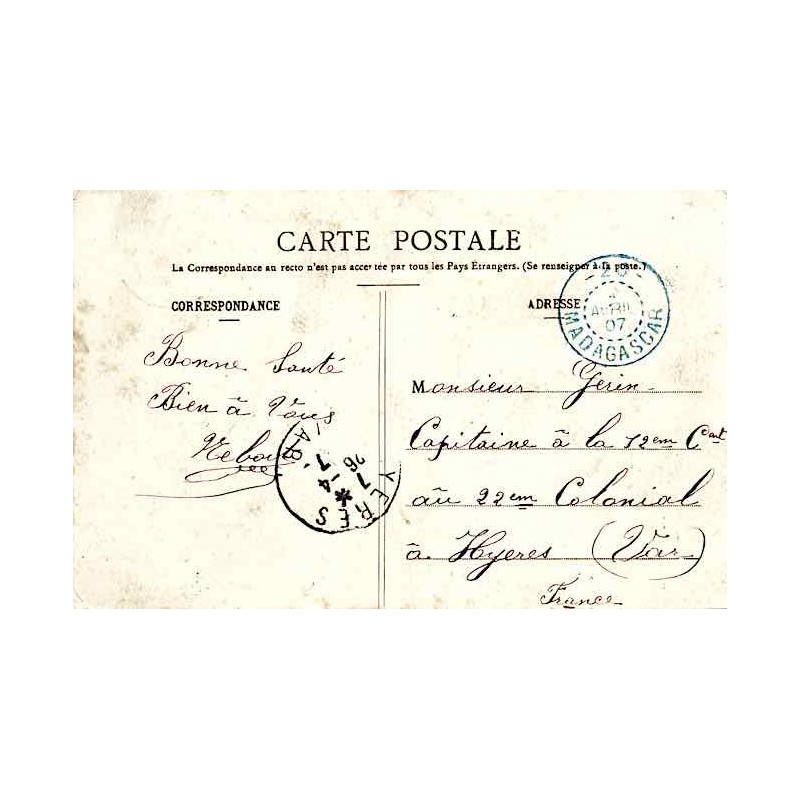 CARTE POSTALE
La Correspondance au recto n'est pas acceptée par tous les Pays Étrangers. (Se renseigner à la poste.)
CORRESPONDANCE
ADRESSE
Bonne Santé
Bien à Vous
Monsieur Gérin
Capitaine à la 12em Cie
au 22em Colonial
à Hyeres (Var)
France
AVRIL
07
MADAGASCAR
YERES
VAR
7
26 -4